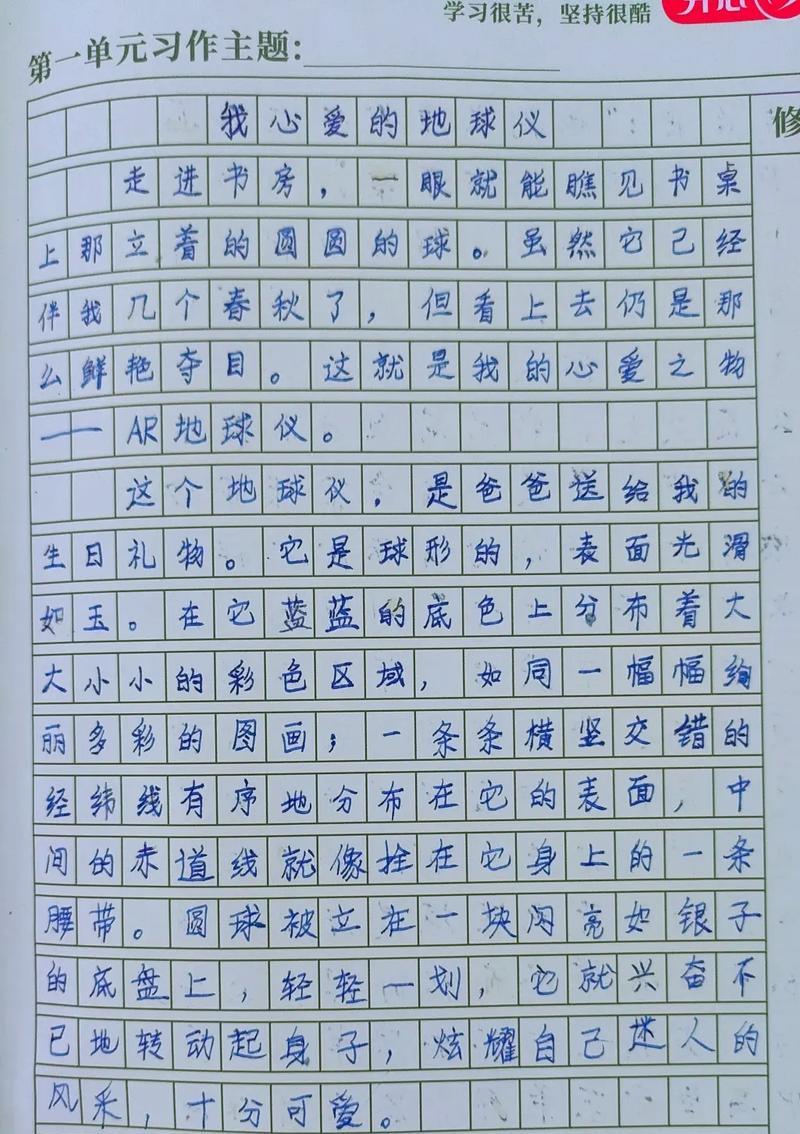 学习很苦，坚持很酷
第一单元习作主题：
我心爱的地球仪
走进书房，一眼就能瞧见书桌
上那立着的圆圆的球。虽然它已经
伴我几个春秋了，但看上去仍是那
么鲜艳夺目。这就是我的心爱之物
——AR地球仪。
这个地球仪，是爸爸送给我的
生日礼物。它是球形的，表面光滑
如玉。在它蓝蓝的底色上分布着大
大小小的彩色区域，如同一幅幅绚
丽多彩的图画；一条条横竖交错的
经纬线有序地分布在它的表面，中
间的赤道线就像拴在它身上的一条
腰带。圆球被立在一块闪亮如银子
的底盘上，轻轻一划，它就兴奋不
已地转动起身子，炫耀自己迷人的
风采，十分可爱。